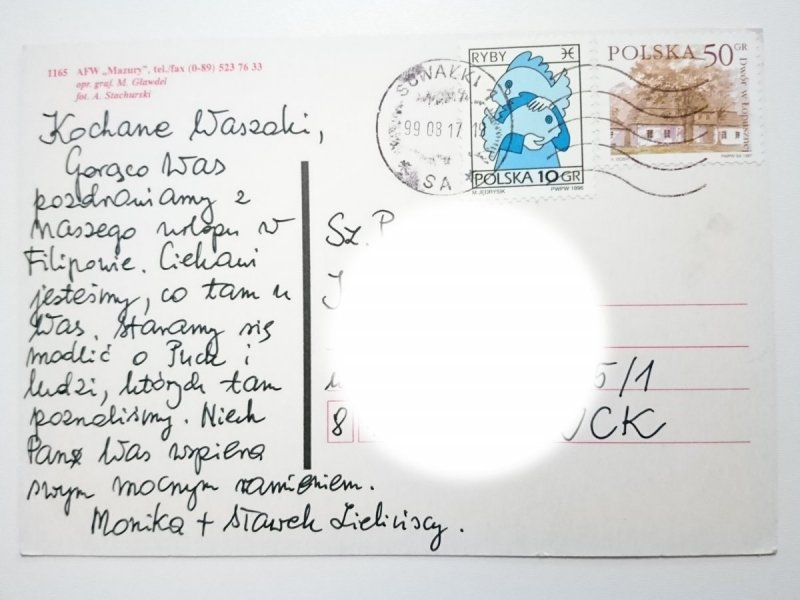 1165 AFW „Mazury”, tel./fax (0-89) 523 76 33
opr. graf. M. Gławdel
fot. A. Stachurski
Kochane Waszaki,
Gorąco Was
pozdrawiamy z
naszego urlopu w
Filipowie. Ciekawi
jesteśmy, co tam u
Was. Staramy się
modlić o Puck i
ludzi, których tam
poznaliśmy. Niech
Pan Was wspiera
swym mocnym ramieniem.
Monika + Sławek
SUWAŁKI
99 08 17 18
* SA *
RYBY
POLSKA 10 GR
M. JĘDRYSIK PWPW 1996
POLSKA 50 GR
Dwór w Łopusznej
PWPW SA 1997
Sz. P
5/1
8
UCK